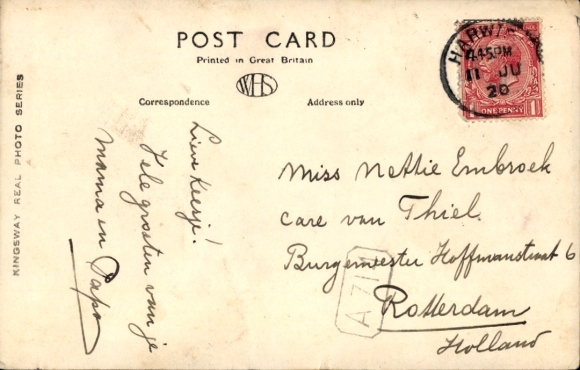 POST CARD
Printed in Great Britain
WHS
Correspondence
Address only
KINGSWAY REAL PHOTO SERIES
HARWICH
4.45PM
11 JU
20
ONE PENNY
1
1
Lieve Keesje!
Vele groeten van je
Mama en Papa
Miss Nettie Embroek
care van Thiel.
Burgemeester Hoffmanstraat 6
Rotterdam
Holland